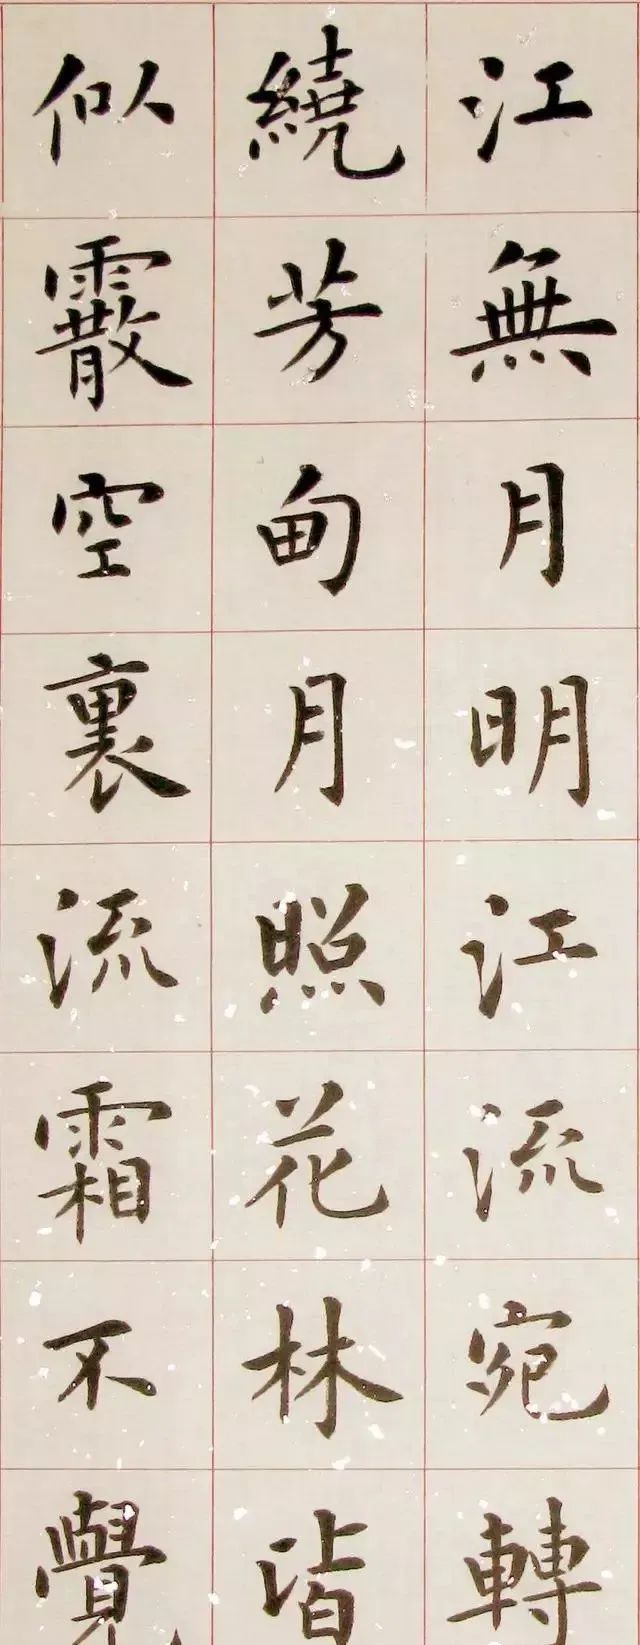 江無月明江流宛轉
繞芳甸月照花林皆
似霰空裏流霜不覺